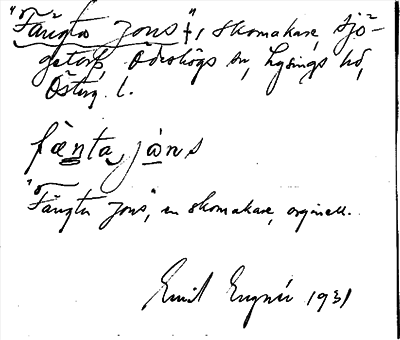 "Fängta Jons" †, skomakare, Sjö-
gatorp, Ödeshögs sn, Lysings hd,
Österg. l.
fænta jåns
"Fängta Jons", en skomakare, orginell.
Emil 1931